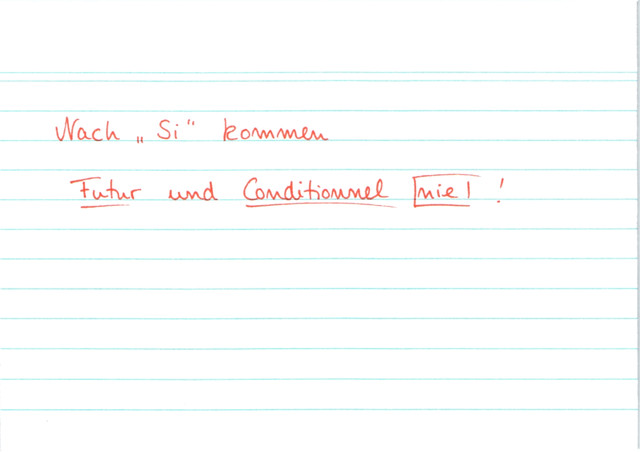 Nach „Si“ kommen
Futur und Conditionnel nie! !